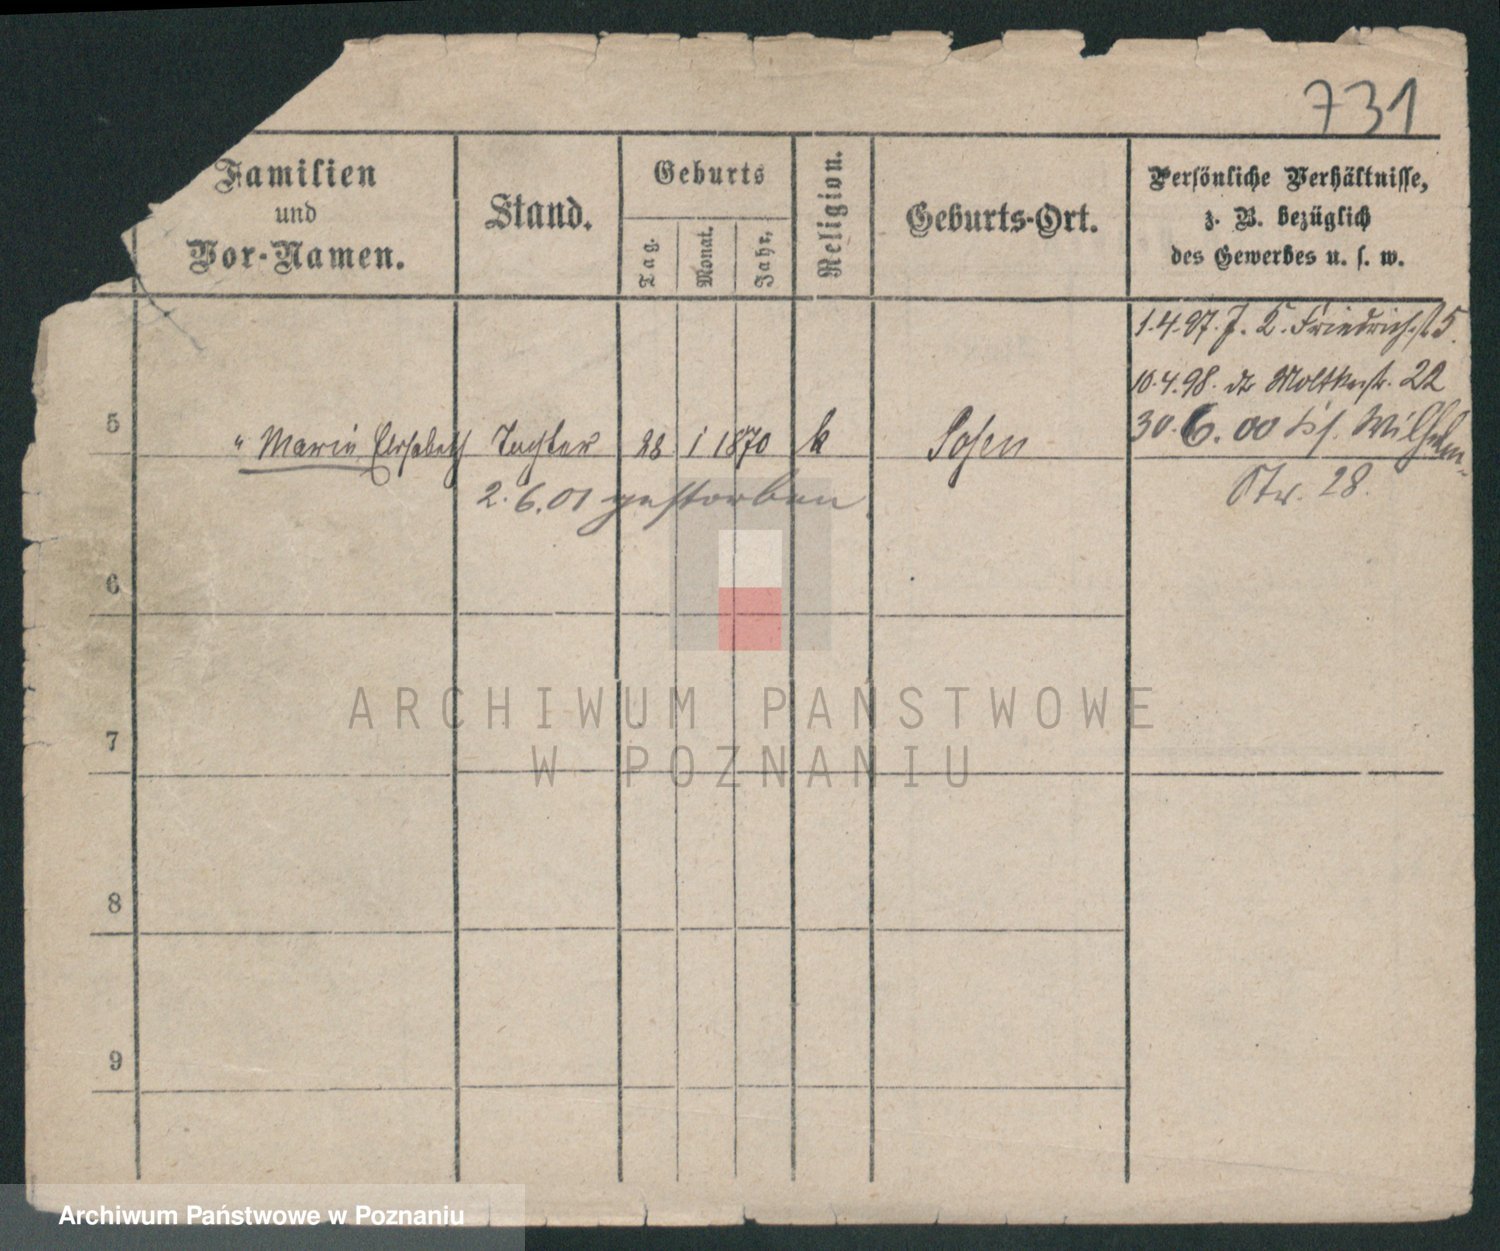 731
Familien
und
Vor-Namen.
Stand.
Geburts
Tag.
Monat.
Jahr.
Religion.
Geburts-Ort.
Persönliche Verhältnisse,
z. B. bezüglich
des Gewerbes u. s. w.
1.4.97. J. L. Friedrichst 5.
10.4.98. Moltkestr. 22
30.6.00 Wilhelm-
Str. 28.
5 " Marie Elisabeth Tochter 28 1 1870 k Posen
2.6.01 gestorben
6
7
8
9
ARCHIWUM PAŃSTWOWE
W POZNANIU
Archiwum Państwowe w Poznaniu